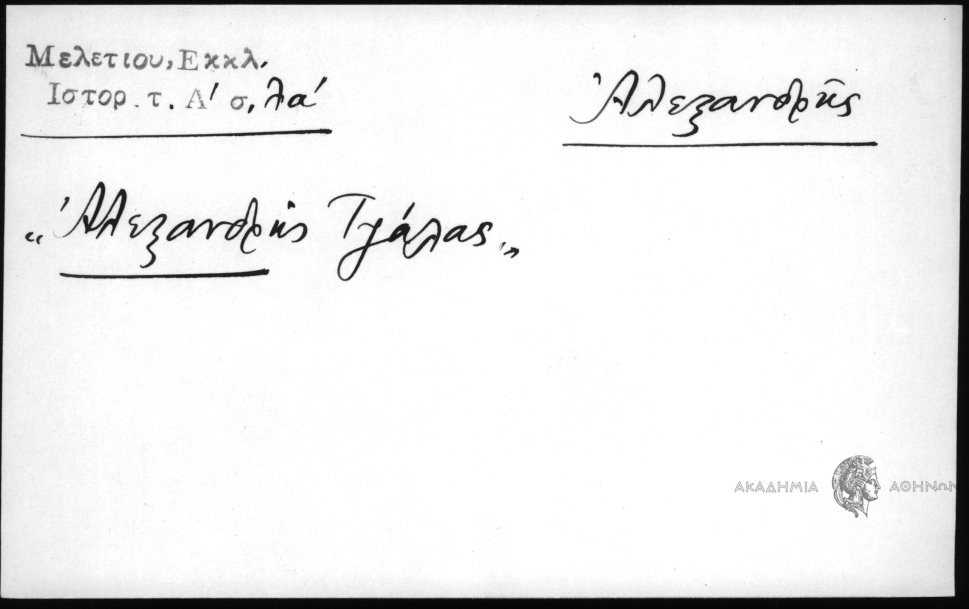 Μελετιου, Εκκλ.
Ιστορ. τ. Α' σ, λα'
Ἀλεξανδρῆς
« Ἀλεξανδρῆς Τζάλας »
ΑΚΑΔΗΜΙΑ ΑΘΗΝΩΝ